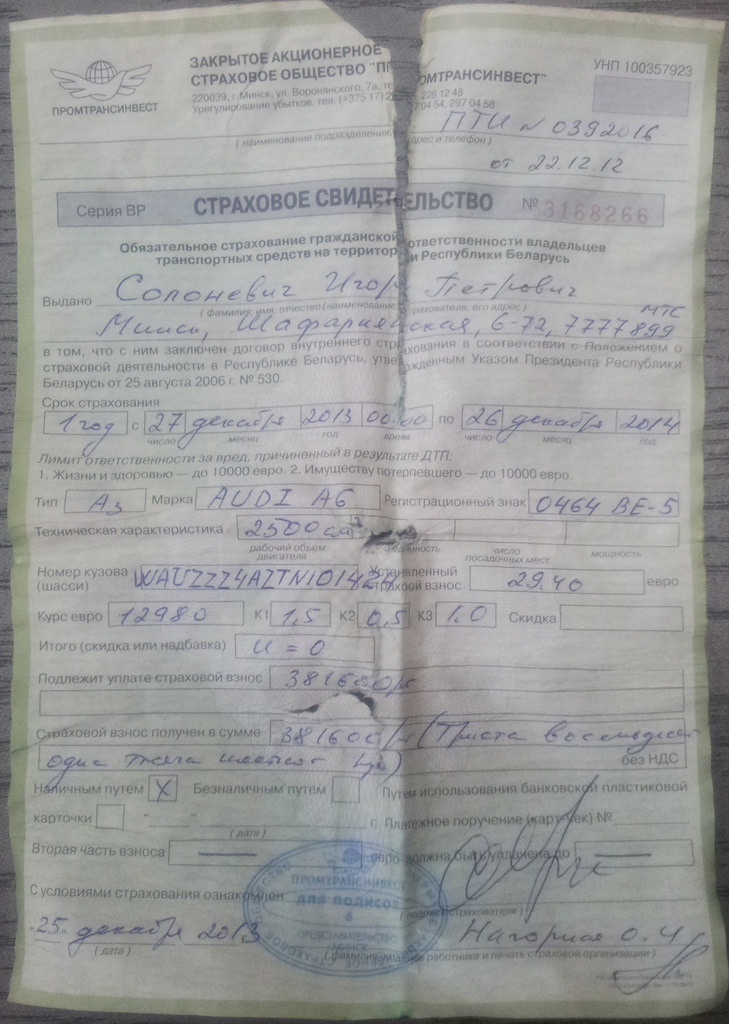 ПРОМТРАНСИНВЕСТ
ЗАКРЫТОЕ АКЦИОНЕРНОЕ
СТРАХОВОЕ ОБЩЕСТВО "ПРОМТРАНСИНВЕСТ"
УНП 100357923
220039, г.Минск, ул. Воронянского, 7а, 228 12 48
Урегулирование убытков, тел. (+375 17) 04 54, 297 04 58
ПТИ № 0392016
(наименование подразделения, адрес и телефон)
от 22.12.12
Серия ВР СТРАХОВОЕ СВИДЕТЕЛЬСТВО № 3168266
Обязательное страхование гражданской ответственности владельцев
транспортных средств на территории Республики Беларусь
Выдано Солоневич Игорь Петрович
(фамилия, имя, отчество (наименование) страхователя, его адрес) МТС
Минск, 6-72, 7777899
в том, что с ним заключен договор внутреннего страхования в соответствии с Положением о
страховой деятельности в Республике Беларусь, утвержденным Указом Президента Республики
Беларусь от 25 августа 2006 г. № 530.
Срок страхования
1 год с 27 декабря 2013 00 00 по 26 декабря 2014
число месяц год время число месяц год
Лимит ответственности за вред, причиненный в результате ДТП:
1. Жизни и здоровью — до 10000 евро. 2. Имуществу потерпевшего — до 10000 евро.
Тип А3 Марка AUDI A6 Регистрационный знак 0464 ВЕ-5
Техническая характеристика 2500 см
рабочий объем двигателя число посадочных мест мощность
Номер кузова (шасси) Установленный страховой взнос 29.40 евро
Курс евро 12980 К1 1,5 К2 0,5 К3 1.0 Скидка
Итого (скидка или надбавка) и = 0
Подлежит уплате страховой взнос 381600
Страховой взнос получен в сумме 381600 (Триста восемьдесят
одна тысяча шестьсот руб) без НДС
Наличным путем X Безналичным путем Путем использования банковской пластиковой
карточки " " г. Платежное поручение (карт-чек) №
(дата)
Вторая часть взноса — евро должна быть уплачена до —
ПРОМТРАНСИНВЕСТ
для полисов
6
ПРЕДСТАВИТЕЛЬСТВО
С условиями страхования ознакомлен
(подпись страхователя)
"25" декабря 2013
(дата)
(фамилия, подпись работника и печать страховой организации)